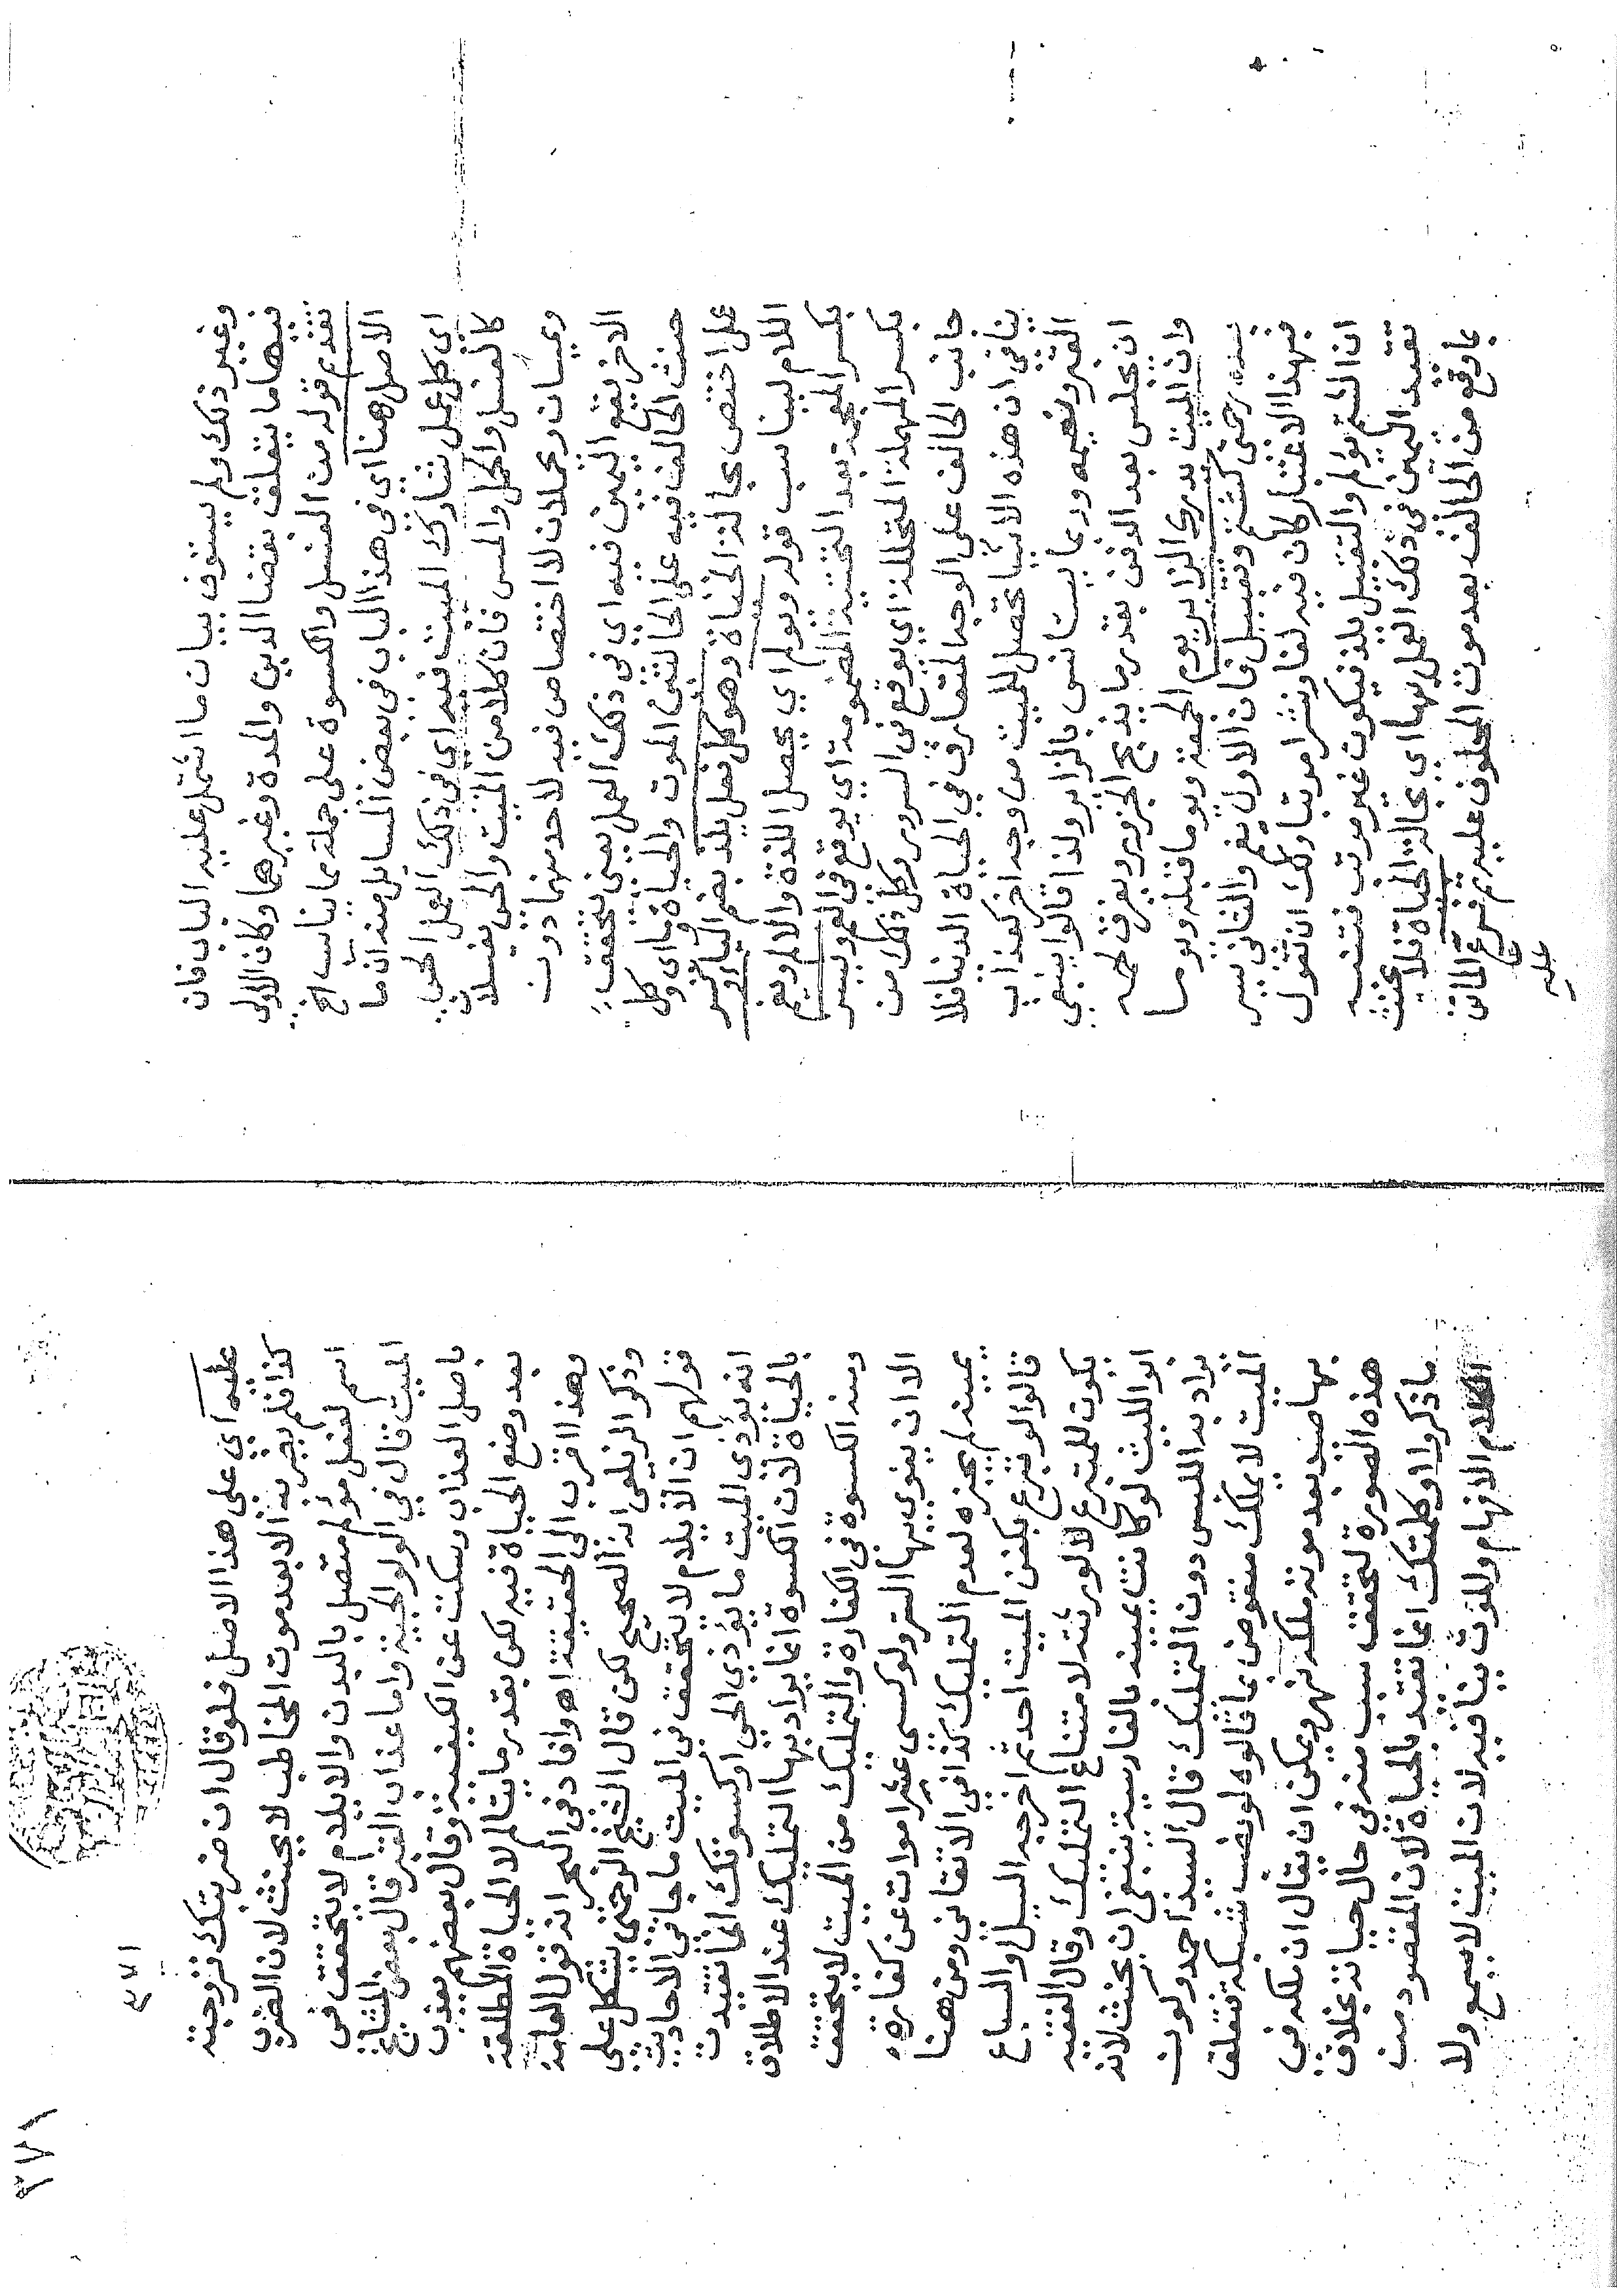 وغير ذلك ولم يستوف بيان ما اشتمل عليه الباب فان
فيها ما يتعلق بقضا الدين والمدة وغيرهما وكان الاولى
تقديم قوله من الغسل والكسوة على جملة ما يناسب الخ
الاصل هنا اي في هذا الباب في بعض المسائل منه ان ما
اي كل عمل شارك الميت فيه اي في ذلك العمل الحي
كالغسل والحمل والمس فان كلا من الميت والحي يغسلان
ويمسان ويحملان لا اختصاص فيه لاحد منهما دون
الاخر يقع اليمين فيه اي في ذلك العمل يعني يتحقق
حنث الحالف فيه على الحالتين الموت والحياة وما اي وكل
عمل اختص بحالة الحياة وهو كل فعل يلذ بضم الياء وكسر
اللام ليناسب قوله ويولم اي يحصل اللذة والالم ويغم
بكسر المعجمة بعد التحتية المضمومة اي يوقع في الغم ويسر
بكسر المهملة المتخللة اي يوقع في السرور وكل ذلك من
جانب الحالف على الوجه المتعارف في الحياة الدنيا فلا
ينافي ان هذه الاشيا تحصل للميت من وجه اخر كعذاب
القبر ونعيمه وربما يستانس بالزاير ولذا قالوا ينبغي
ان يجلس بعد الدفن بقدر ما يذبح الجزور ويفرق لحمه
وان الميت يدري الزاير يوم الجمعة ويوما قبله ويوما
بعده حتى كشتم وتقبيل فان الاول يغم والثاني يسر
فبهذا الاعتبار كان فيه لفا ونشرا مرتبا ولك ان تقول
ان الشتم يولم والتقبيل يلذ فيكون غير مرتب فتنبه
تقيد اليمين في ذلك العمل بها اي بحالة الحياة فلا يحنث
بما وقع من الحالف بعد موت المحلوف عليه ثم فرع الماتن
عليه
٣٧١
٤٧١
عليه اي على هذا الاصل فلو قال ان ضربتك فزوجته
كذا فلم يضربه الا بعد موت المخاطب لا يحنث لان الضرب
اسم لفعل مؤلم متصل بالبدن والايلام لا يتحقق في
الميت قال في الولوالجية واما عذاب القبر قال بعض المشايخ
باصل العذاب وسكت عن الكيفية وقال بعضهم يعذب
بعد وضع الحياة فيه لكن بقدر ما يتالم لا الحياة المطلقة
وهذا اقرب الى الحقيقة اه وافاد في البحر انه قول العامة
وذكر الزيلعي انه الصحيح لكن قال الشيخ الرحمتي يشكل على
قولهم ان الايلام لا يتحقق في الميت ما جا في الاحاديث
انه يؤذي الميت ما يؤذي الحي او كسوتك انما تقيدت
بالحياة لان الكسوة انما يراد بها التمليك عند الاطلاق
ومنه الكسوة في الكفارة والتمليك من الميت لا يتحقق
الا ان ينوي بها الستر ولو كسى عشر اموات عن كفارة
يمينه لم يجزه لعدم التمليك كذا في الاتقاني ومن هنا
قالوا لو تبرع بكفن الميت احد ثم اخرجه السيل والسباع
يكون للمتبرع لا لورثته لامتناع التمليك وقال الفقيه
ابو الليث لو كانت يمينه بالفارسية ينبغي ان يحنث لانه
يراد به اللبس دون التمليك قال السيد احمد وكون
الميت لا يملك منقوض بما قالوه لو نصب شبكة فتعلق
بها صيد بعد موته ملكه ويمكن ان يقال ان ملكه في
هذه الصورة لتحقق سبب منه في حال حياته بخلاف
ما ذكروا او كلمتك انما تقيد بالحياة لان المقصود من
الكلام الافهام والموت ينافيه لان الميت لا يسمع ولا